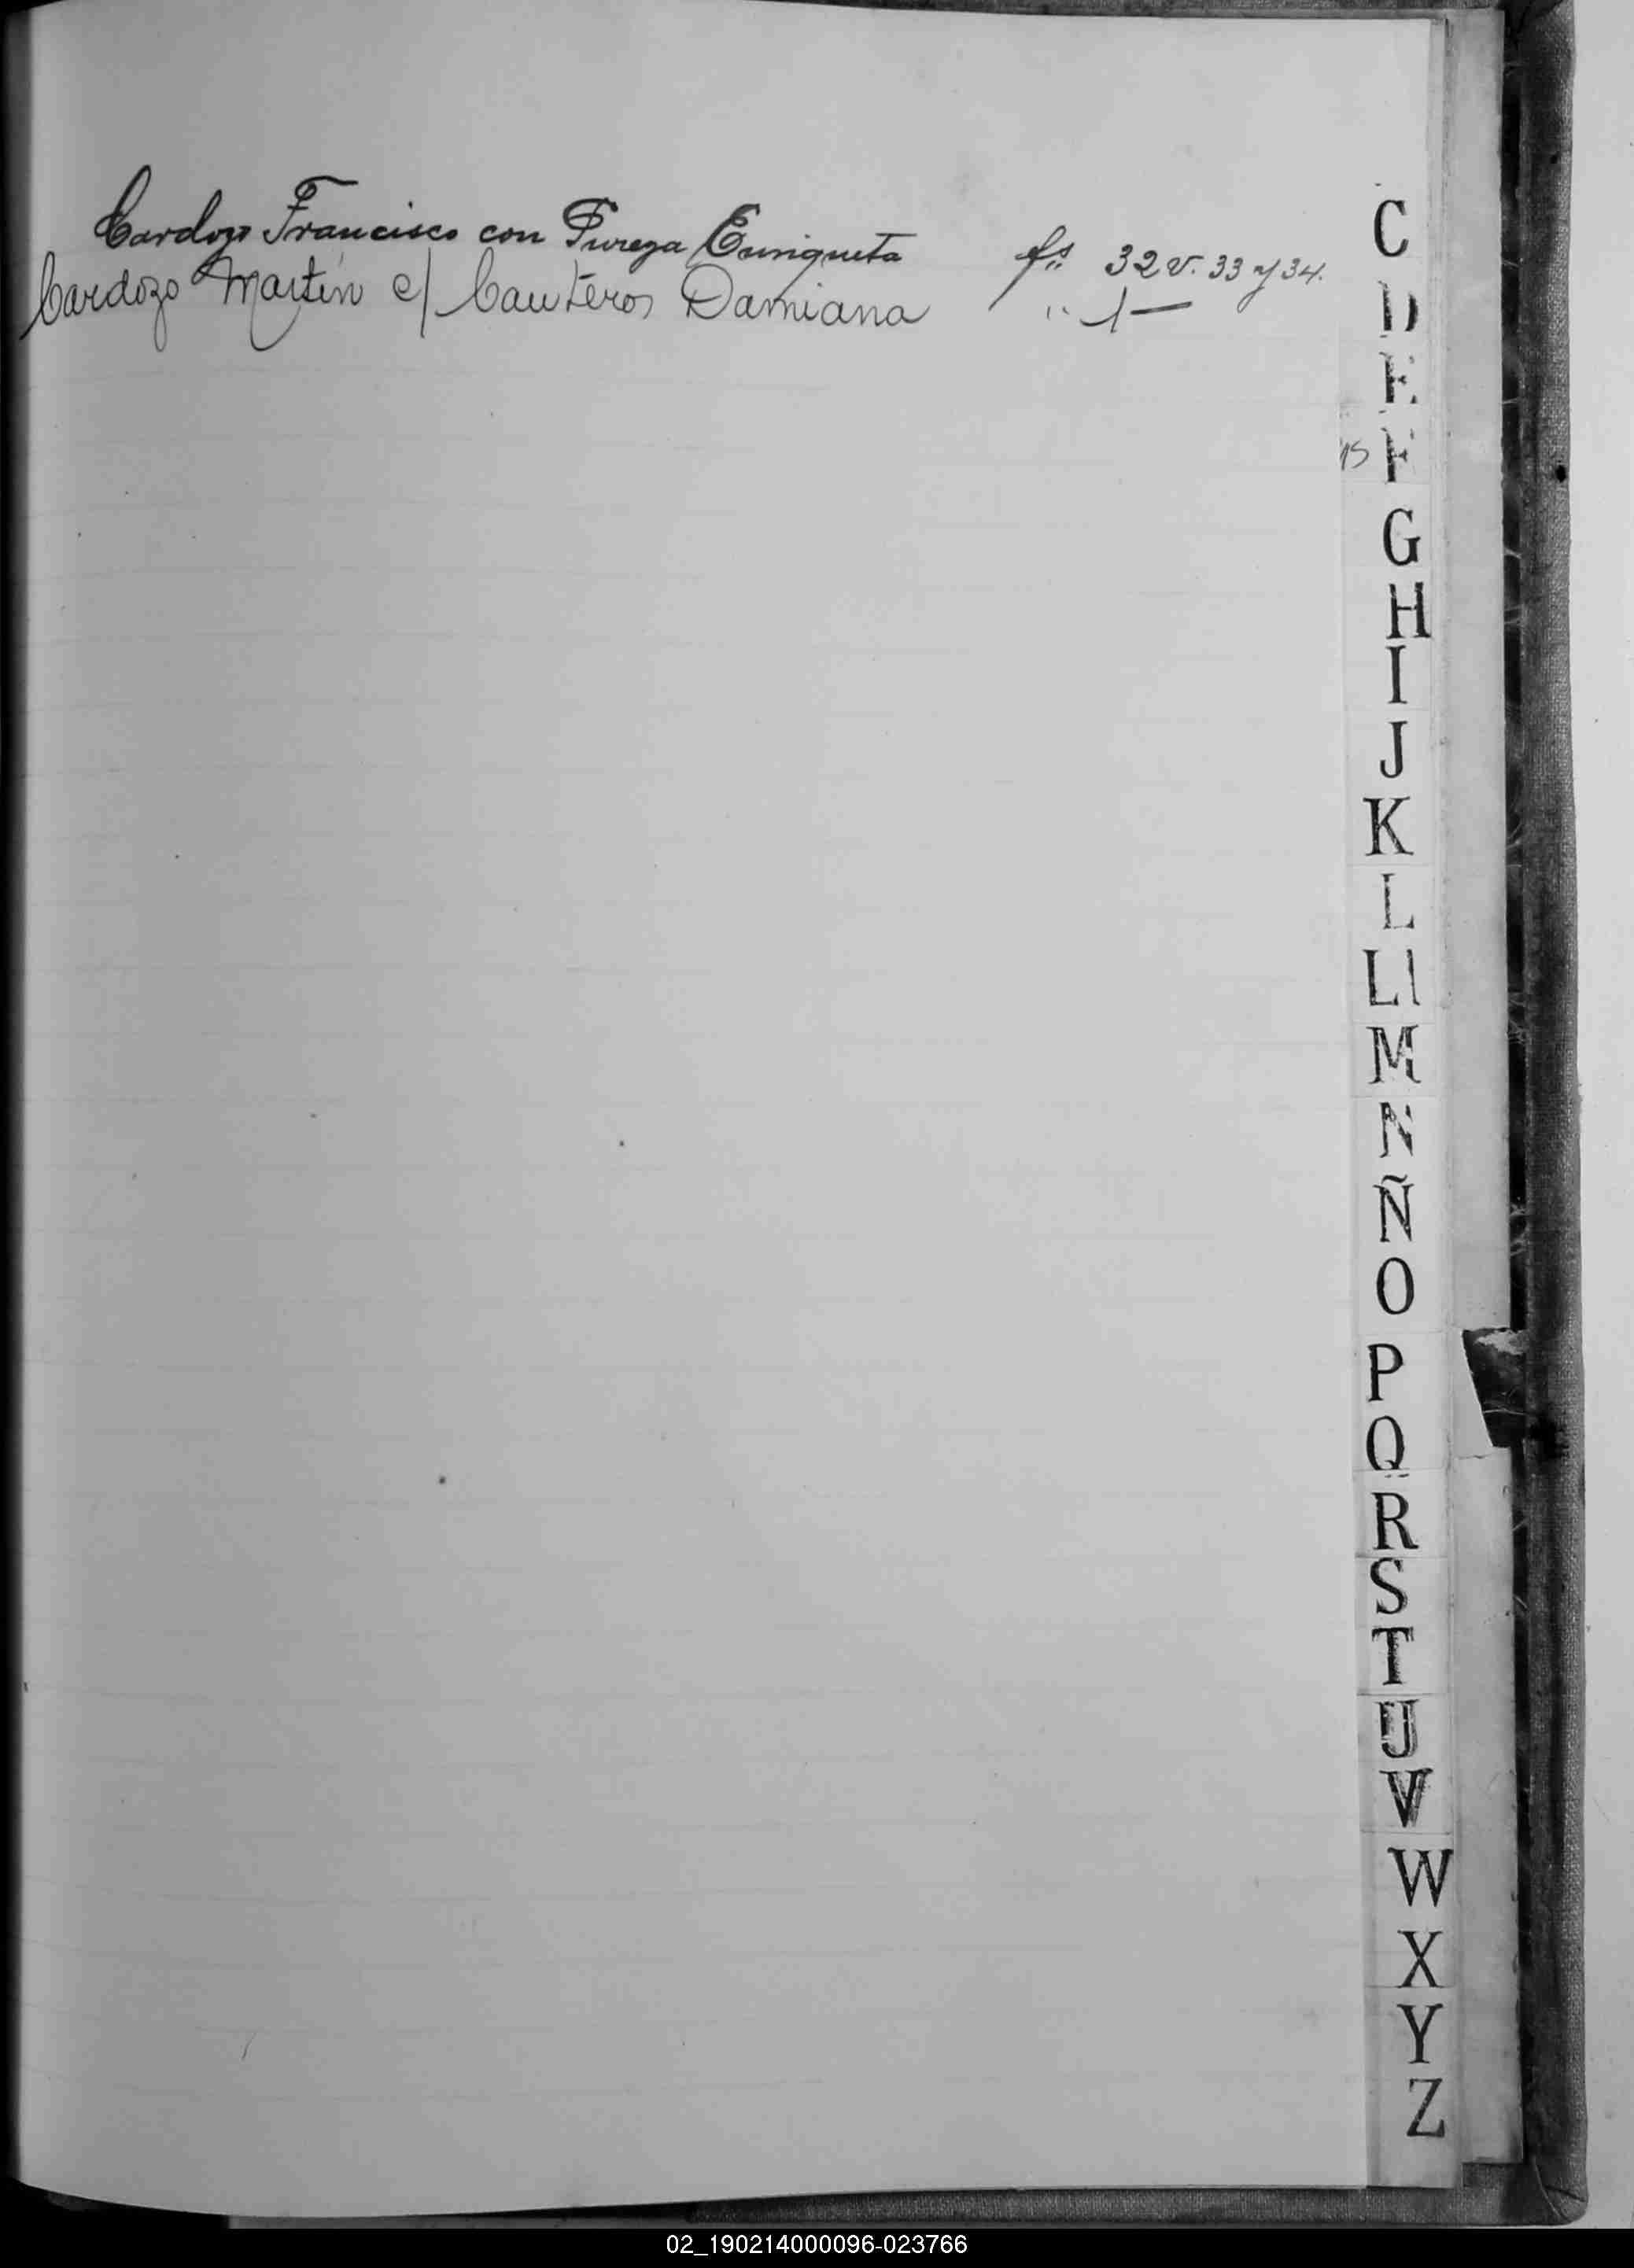 Cardozo Francisco con Pureza Enriqueta fs. 32 v. 33 y 34.
Cardozo Martín c/ Cauteros Damiana " 1 —
C
D
E
15 F
G
H
I
J
K
L
Ll
M
N
Ñ
O
P
Q
R
S
T
U
V
W
X
Y
Z
02_190214000096-023766